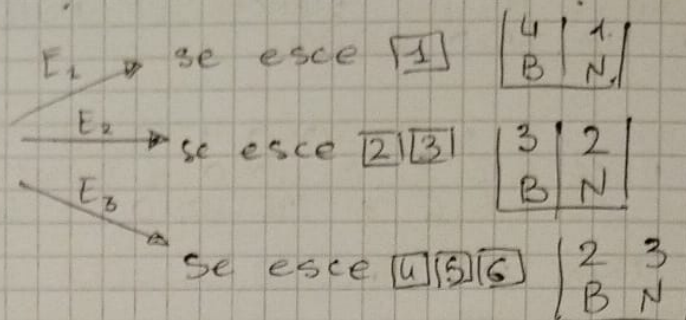 E₁ se esce 1 4 1
B N
E₂ se esce 2 3 3 2
B N
E₃ se esce 4 5 6 2 3
B N